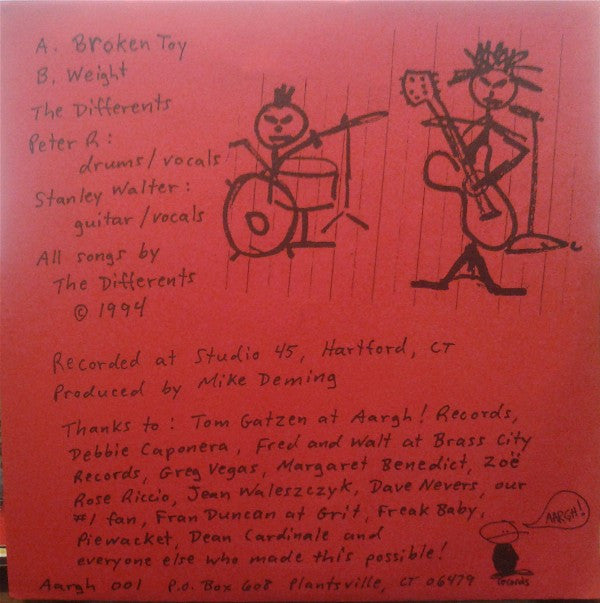 A. Broken Toy
B. Weight
The Differents
Peter R:
drums/vocals
Stanley Walter:
guitar/vocals
All songs by
The Differents
© 1994
Recorded at Studio 45, Hartford, CT
Produced by Mike Deming
Thanks to: Tom Gatzen at Aargh! Records,
Debbie Caponera, Fred and Walt at Brass City
Records, Greg Vegas, Margaret Benedict, Zoë
Rose Riccio, Jean Waleszczyk, Dave Nevers, our
#1 fan, Fran Duncan at Grit, Freak Baby,
Piewacket, Dean Cardinale and
everyone else who made this possible!
AARGH!
records
Aargh 001 P.O. Box 608 Plantsville, CT 06479